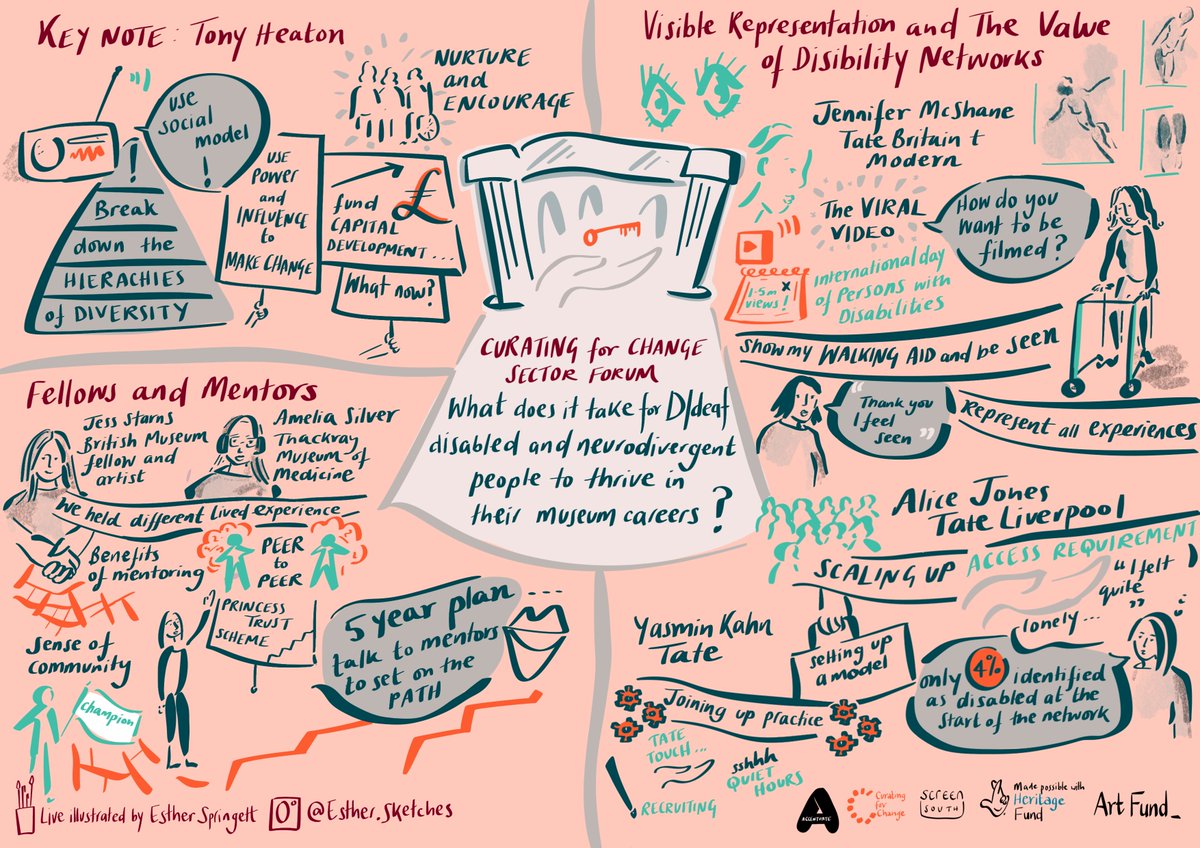 KEY NOTE: Tony Heaton
USE
social
model
!
!
Break
down the
HIERACHIES
of DIVERSITY
USE
POWER
and
INFLUENCE
to
MAKE CHANGE
NURTURE
and
ENCOURAGE
£
fund
CAPITAL
DEVELOPMENT...
What now?
CURATING for CHANGE
SECTOR FORUM
What does it take for D/deaf
disabled and neurodivergent
people to thrive in
their museum careers?
Visible Representation and The Value
of Disibility Networks
Jennifer McShane
Tate Britain +
Modern
The VIRAL
VIDEO
1.5m
views!
International day
of Persons with
Disabilities
How do you
want to be
filmed?
Show my WALKING AID and be seen
"Thank you
I feel
seen"
Represent all experiences
Fellows and Mentors
Jess Starns
British Museum
fellow and
artist
Amelia Silver
Thackray
Museum of
Medicine
We held different lived experience
Benefits
of mentoring
PEER
to
PEER
Sense of
community
Champion
PRINCESS
TRUST
SCHEME
5 year plan
talk to mentors
to set on the
PATH
Alice Jones
Tate Liverpool
SCALING UP
ACCESS REQUIREMENT
"I felt
quite"
lonely...
only 4% identified
as disabled at the
start of the network
Yasmin Kahn
Tate
setting up
a model
Joining up practice
TATE
TOUCH...
sshhh
QUIET
HOURS
! RECRUITING
Live illustrated by Esther Springett
@Esther_Sketches
A
ACCENTUATE
Curating
for
Change
SCREEN
SOUTH
Made possible with
Heritage
Fund
Art Fund_